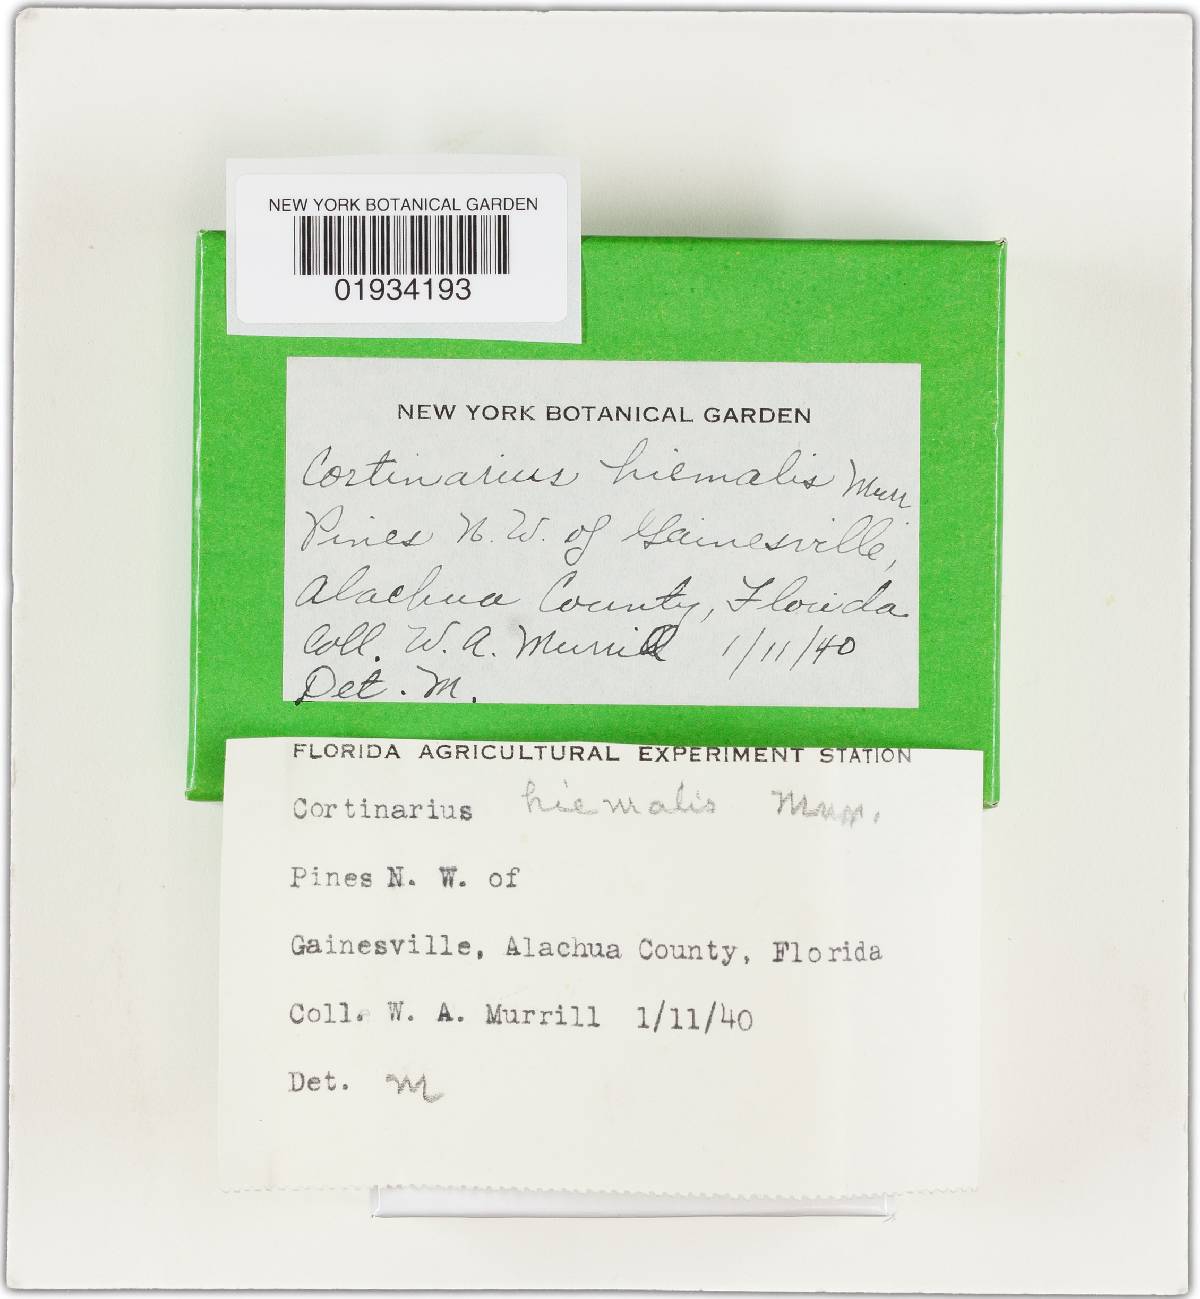 NEW YORK BOTANICAL GARDEN
01934193
NEW YORK BOTANICAL GARDEN
Cortinarius hiemalis Murr
Pines N. W. of Gainesville,
Alachua County, Florida
Coll. W. A. Murrill 1/11/40
Det. M.
FLORIDA AGRICULTURAL EXPERIMENT STATION
Cortinarius hiemalis Murr.
Pines N. W. of
Gainesville, Alachua County, Florida
Coll. W. A. Murrill 1/11/40
Det. M